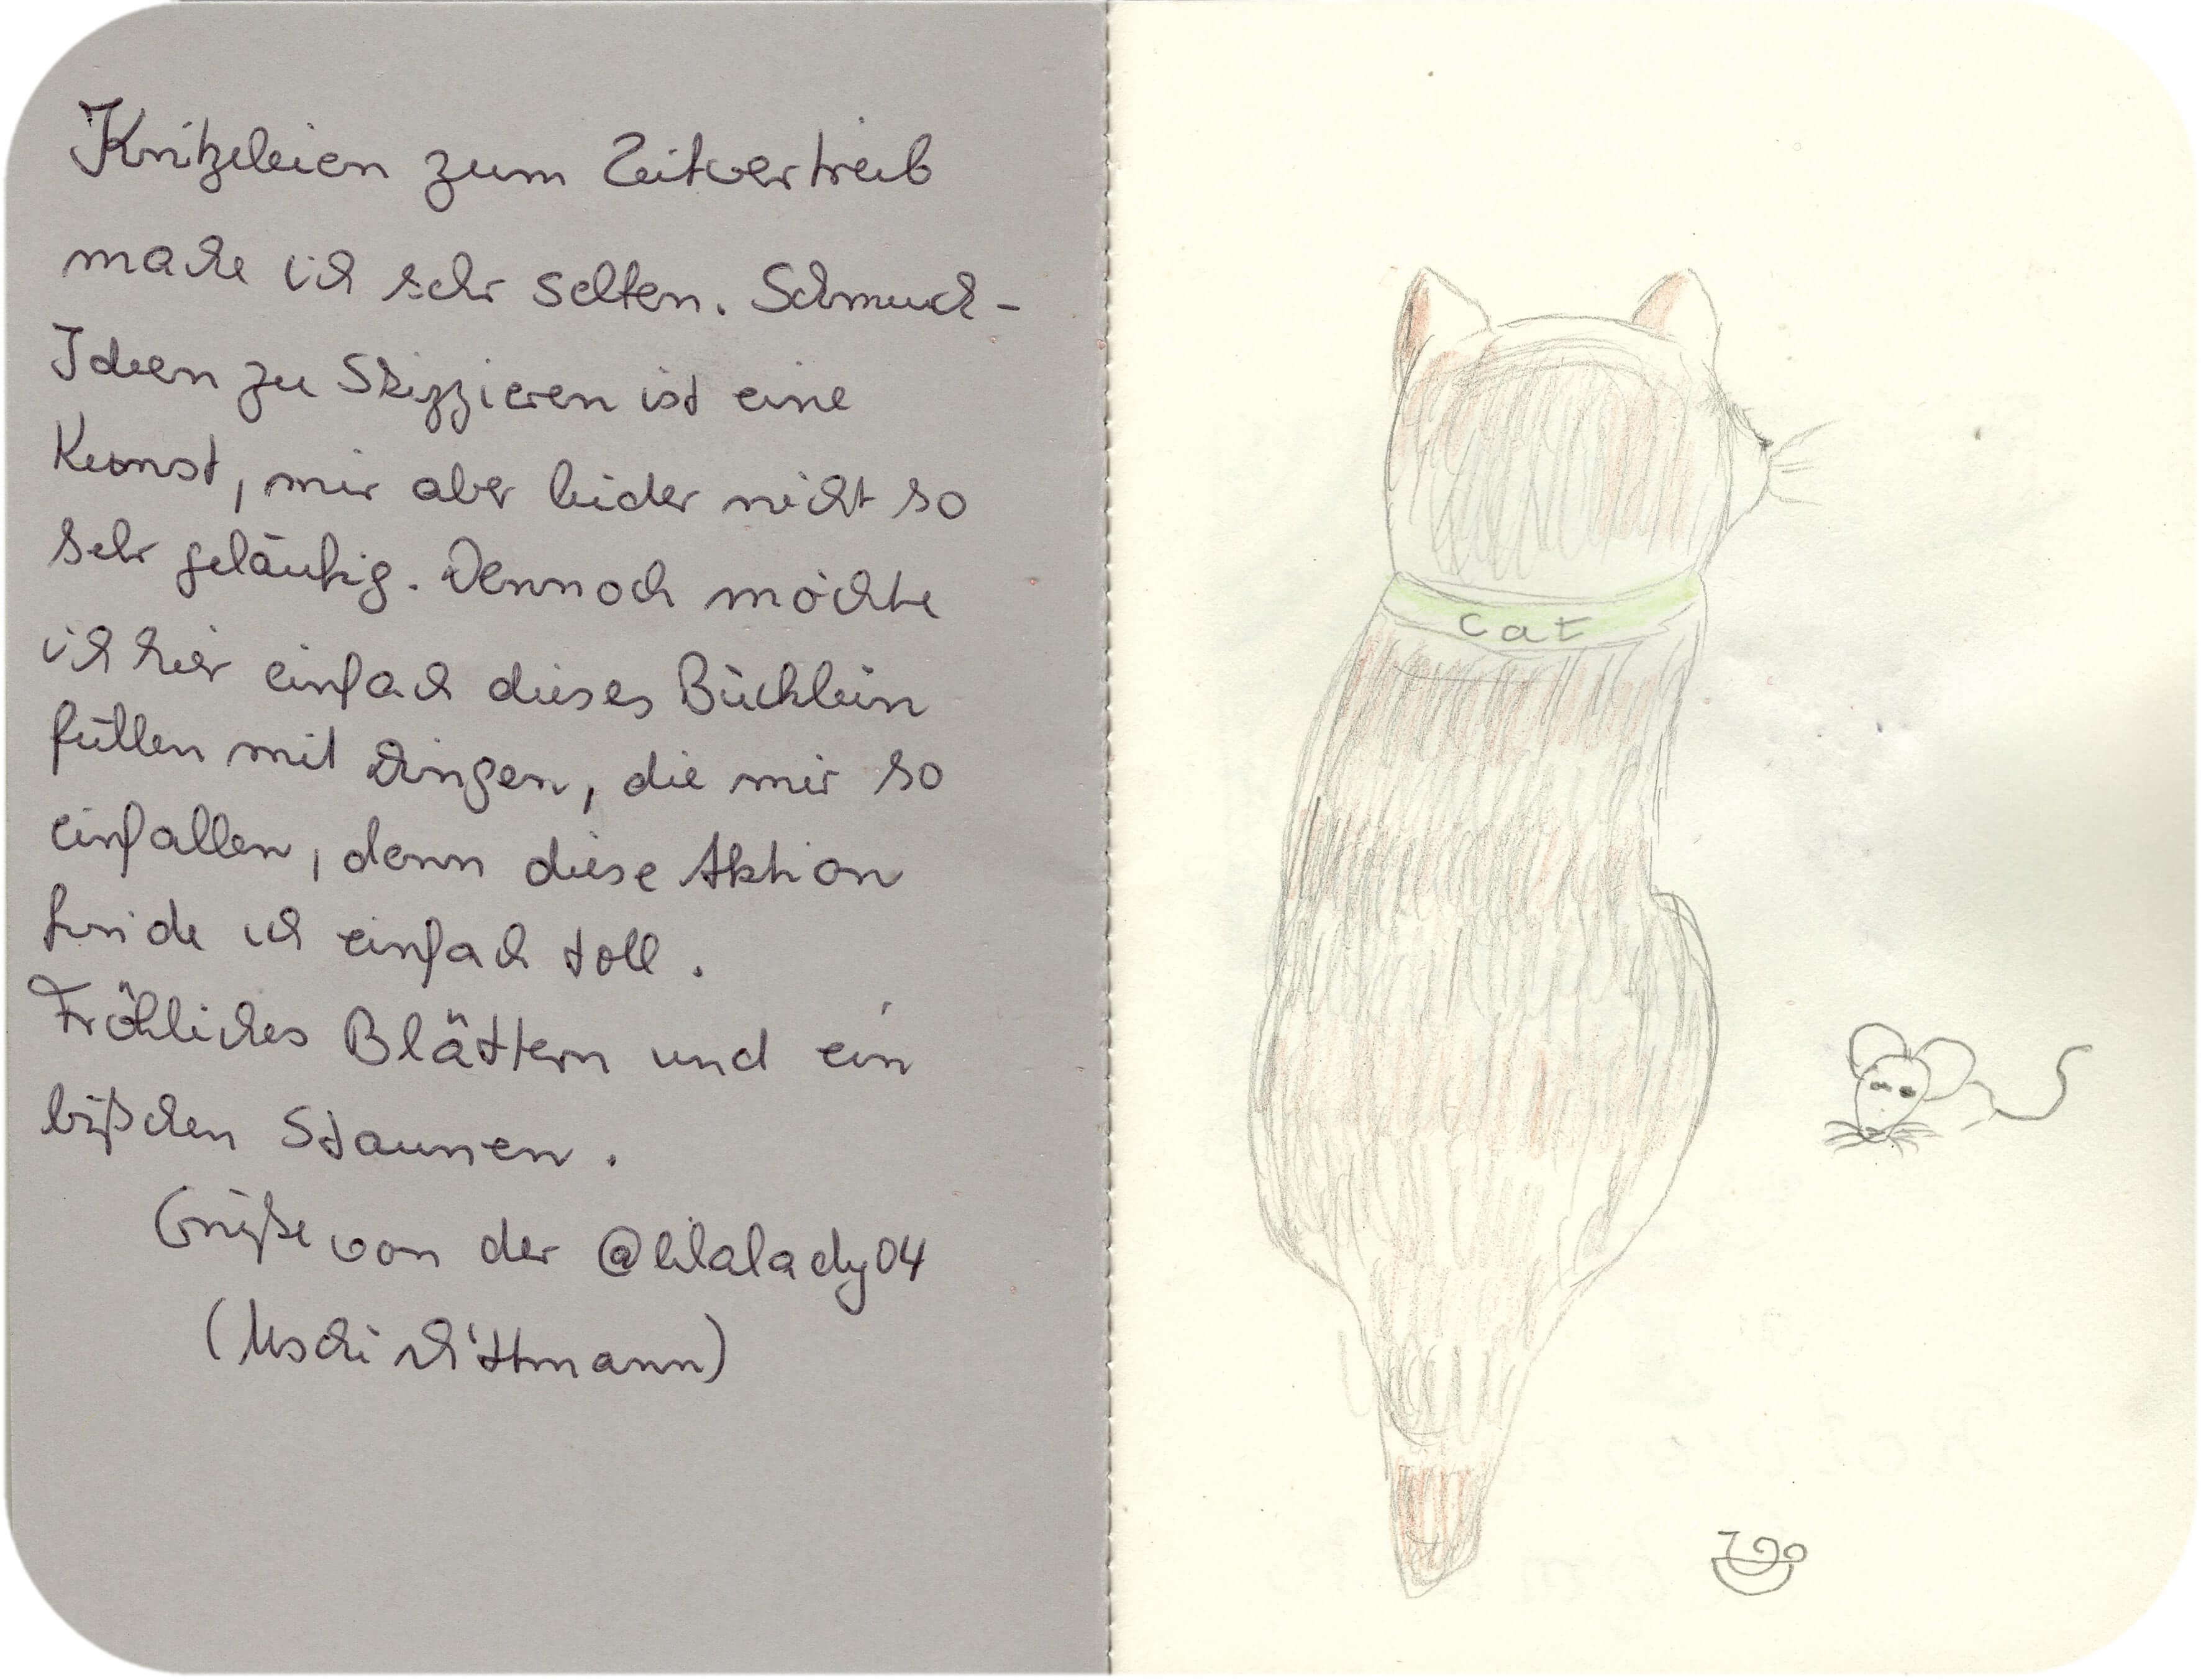 Kritzeleien zum Zeitvertreib
mache ich sehr selten. Schmuck-
Ideen zu Skizzieren ist eine
Kunst, mir aber leider nicht so
sehr geläufig. Dennoch möchte
ich hier einfach dieses Büchlein
füllen mit Dingen, die mir so
einfallen, denn diese Aktion
finde ich einfach toll.
Fröhliches Blättern und ein
bißchen Staunen.
Grüße von der @lilalady04
(Uschi Dittmann)
cat